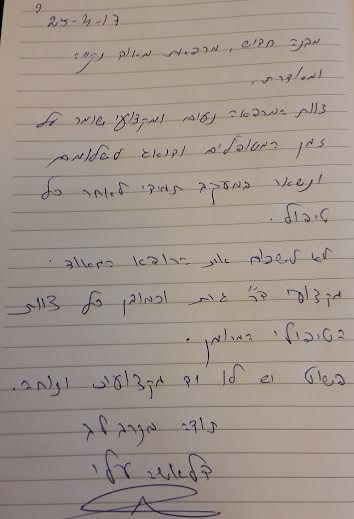 25-4-17
מבנה חדיש, מרפאה מאוד נקייה
ומסודרת,
צוות המרפאה נעים ומקצועי שומר על
זמן המטופלים ודואג לשלומם
ונשאר במעקב תמידי לאחר כל
טיפול.
לא לשכוח את הרופא המאוד
מקצועי ד"ר וכמובן כל צוות
הטיפולי המיומן.
פשוט יש לו יד מקצועית ונוחה.
תודה מקרב לב
עלי